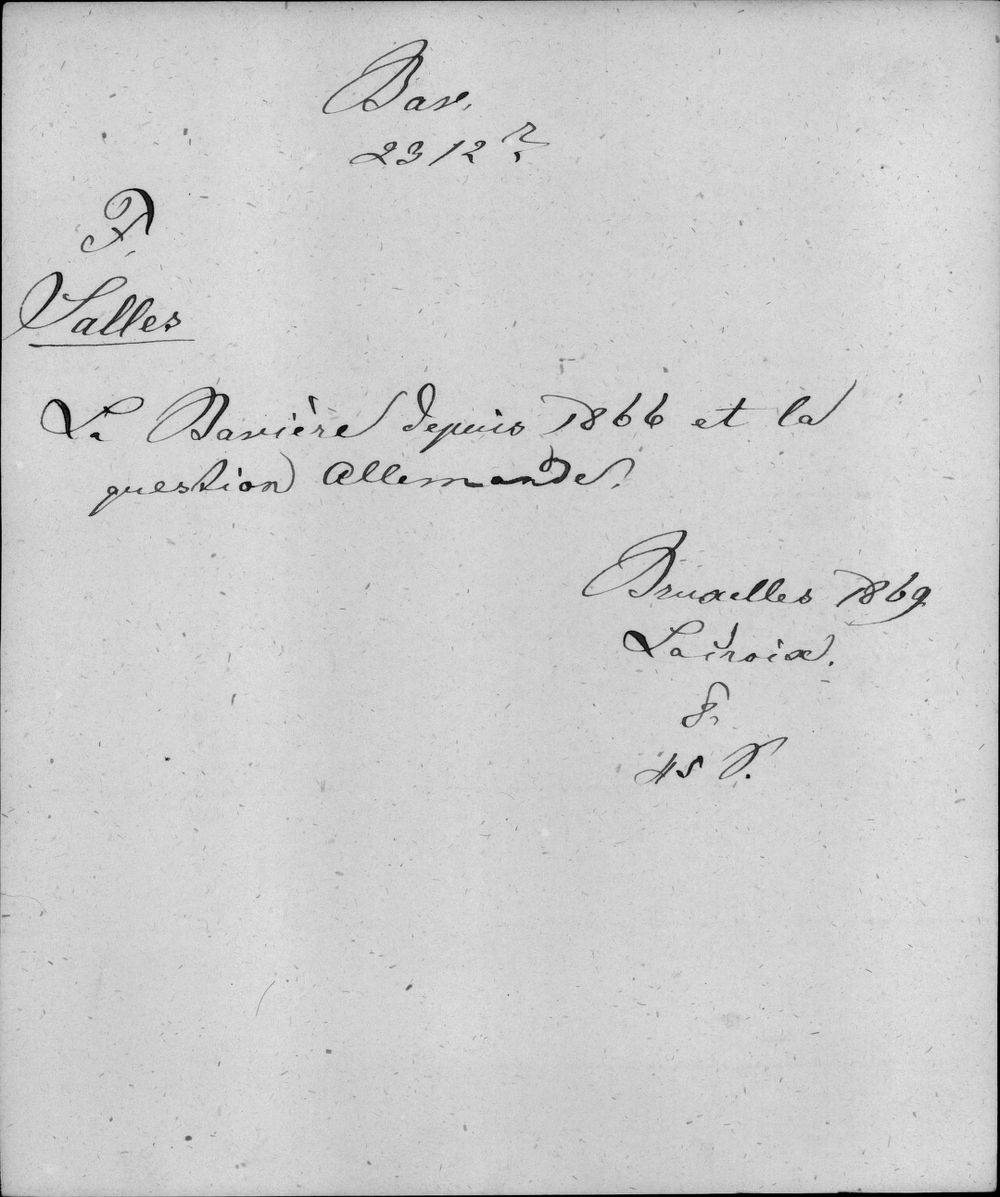 Bav.
2312 r
F.
Salles
La Bavière depuis 1866 et la
question Allemande.
Bruxelles 1869
Lacroix.
8.
45 S.